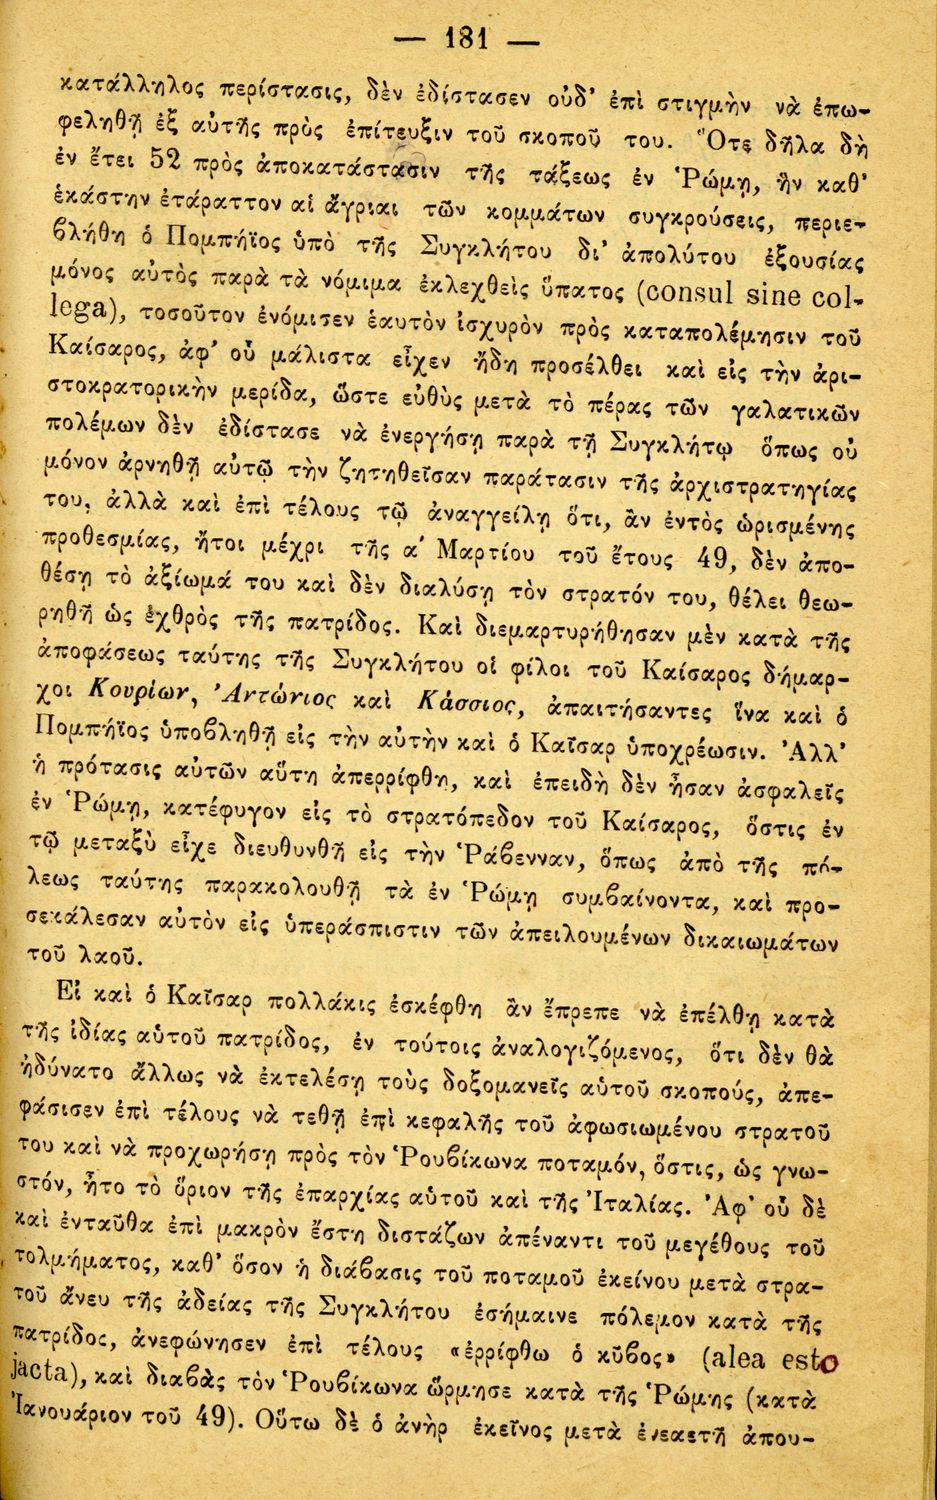 — 181 —
κατάλληλος περίστασις, δὲν ἐδίστασεν οὐδ' ἐπὶ στιγμὴν νὰ ἐπω-
φεληθῇ ἐξ αὐτῆς πρὸς ἐπίτευξιν τοῦ σκοποῦ του. Ὅτε δῆλα δὴ
ἐν ἔτει 52 πρὸς ἀποκατάστασιν τῆς τάξεως ἐν Ῥώμῃ, ἣν καθ'
ἑκάστην ἐτάραττον αἱ ἄγριαι τῶν κομμάτων συγκρούσεις, περιε-
βλήθη ὁ Πομπήϊος ὑπὸ τῆς Συγκλήτου δι' ἀπολύτου ἐξουσίας
μόνος αὐτὸς παρὰ τὰ νόμιμα ἐκλεχθεὶς ὕπατος (consul sine col-
lega), τοσοῦτον ἐνόμισεν ἑαυτὸν ἰσχυρὸν πρὸς καταπολέμησιν τοῦ
Καίσαρος, ἀφ' οὗ μάλιστα εἶχεν ἤδη προσέλθει καὶ εἰς τὴν ἀρι-
στοκρατορικὴν μερίδα, ὥστε εὐθὺς μετὰ τὸ πέρας τῶν γαλατικῶν
πολέμων δὲν ἐδίστασε νὰ ἐνεργήσῃ παρὰ τῇ Συγκλήτῳ ὅπως οὐ
μόνον ἀρνηθῇ αὐτῷ τὴν ζητηθεῖσαν παράτασιν τῆς ἀρχιστρατηγίας
του, ἀλλὰ καὶ ἐπὶ τέλους τῷ ἀναγγείλῃ ὅτι, ἂν ἐντὸς ὡρισμένης
προθεσμίας, ἤτοι μέχρι τῆς α' Μαρτίου τοῦ ἔτους 49, δὲν ἀπο-
θέσῃ τὸ ἀξίωμά του καὶ δὲν διαλύσῃ τὸν στρατόν του, θέλει θεω-
ρηθῆ ὡς ἐχθρὸς τῆς πατρίδος. Καὶ διεμαρτυρήθησαν μὲν κατὰ τῆς
ἀποφάσεως ταύτης τῆς Συγκλήτου οἱ φίλοι τοῦ Καίσαρος δήμαρ-
χοι Κουρίων, Ἀντώνιος καὶ Κάσσιος, ἀπαιτήσαντες ἵνα καὶ ὁ
Πομπήϊος ὑποβληθῇ εἰς τὴν αὐτὴν καὶ ὁ Καῖσαρ ὑποχρέωσιν. Ἀλλ'
ἡ πρότασις αὐτῶν αὕτη ἀπερρίφθη, καὶ ἐπειδὴ δὲν ἦσαν ἀσφαλεῖς
ἐν Ῥώμῃ, κατέφυγον εἰς τὸ στρατόπεδον τοῦ Καίσαρος, ὅστις ἐν
τῷ μεταξὺ εἶχε διευθυνθῆ εἰς τὴν Ῥάβενναν, ὅπως ἀπὸ τῆς πό-
λεως ταύτης παρακολουθῇ τὰ ἐν Ῥώμῃ συμβαίνοντα, καὶ προ-
σεκάλεσαν αὐτὸν εἰς ὑπεράσπιστιν τῶν ἀπειλουμένων δικαιωμάτων
τοῦ λαοῦ.
Εἰ καὶ ὁ Καῖσαρ πολλάκις ἐσκέφθη ἂν ἔπρεπε νὰ ἐπέλθῃ κατὰ
τῆς ἰδίας αὑτοῦ πατρίδος, ἐν τούτοις ἀναλογιζόμενος, ὅτι δὲν θὰ
ἠδύνατο ἄλλως νὰ ἐκτελέσῃ τοὺς δοξομανεῖς αὑτοῦ σκοπούς, ἀπε-
φάσισεν ἐπὶ τέλους νὰ τεθῇ ἐπὶ κεφαλῆς τοῦ ἀφωσιωμένου στρατοῦ
του καὶ νὰ προχωρήσῃ πρὸς τὸν Ῥουβίκωνα ποταμόν, ὅστις, ὡς γνω-
στόν, ἦτο τὸ ὅριον τῆς ἐπαρχίας αὑτοῦ καὶ τῆς Ἰταλίας. Ἀφ' οὗ δὲ
καὶ ἐνταῦθα ἐπὶ μακρὸν ἔστη διστάζων ἀπέναντι τοῦ μεγέθους τοῦ
τολμήματος, καθ' ὅσον ἡ διάβασις τοῦ ποταμοῦ ἐκείνου μετὰ στρα-
τοῦ ἄνευ τῆς ἀδείας τῆς Συγκλήτου ἐσήμαινε πόλεμον κατὰ τῆς
πατρίδος, ἀνεφώνησεν ἐπὶ τέλους «ἐρρίφθω ὁ κῦβος» (alea esto
jacta), καὶ διαβὰς τὸν Ῥουβίκωνα ὥρμησε κατὰ τῆς Ῥώμης (κατὰ
Ἰανουάριον τοῦ 49). Οὕτω δὲ ὁ ἀνὴρ ἐκεῖνος μετὰ ἐνεαετῆ ἀπου-